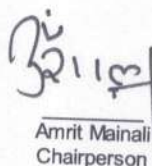 Amrit Mainali
Chairperson